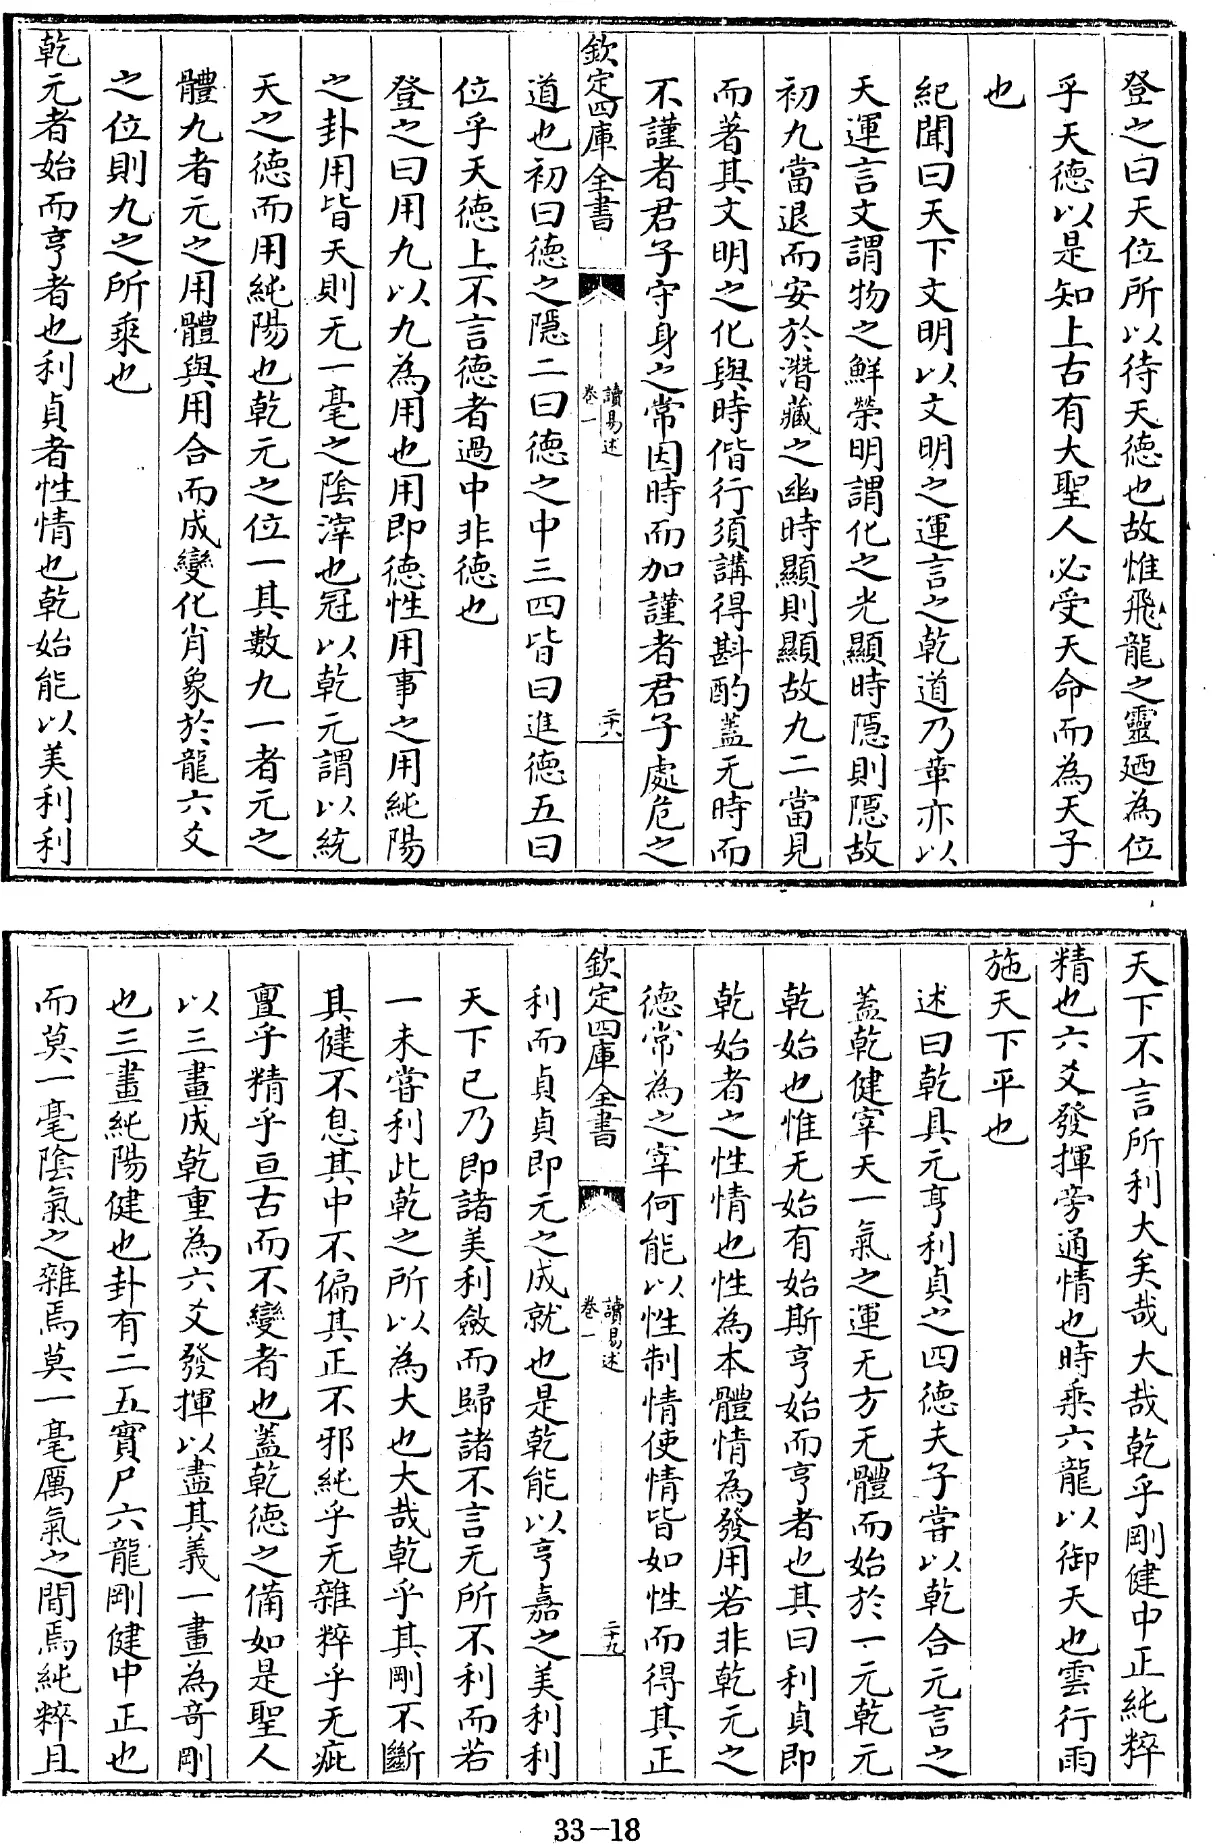 登之曰天位所以待天德也故惟飛龍之靈廼為位
乎天德以是知上古有大聖人必受天命而為天子
也
紀聞曰天下文明以文明之運言之乾道乃革亦以
天運言文謂物之鮮榮明謂化之光顯時隱則隱故
初九當退而安於潛藏之幽時顯則顯故九二當見
而著其文明之化與時偕行須講得斟酌蓋无時而
不謹者君子守身之常因時而加謹者君子處危之
欽定四庫全書
讀易述
卷一
二十八
道也初曰德之隱二曰德之中三四皆曰進德五曰
位乎天德上不言德者過中非德也
登之曰用九以九為用也用即德性用事之用純陽
之卦用皆天則无一毫之陰滓也冠以乾元謂以統
天之德而用純陽也乾元之位一其數九一者元之
體九者元之用體與用合而成變化肖象於龍六爻
之位則九之所乘也
乾元者始而亨者也利貞者性情也乾始能以美利利
天下不言所利大矣哉大哉乾乎剛健中正純粹
精也六爻發揮旁通情也時乘六龍以御天也雲行雨
施天下平也
述曰乾具元亨利貞之四德夫子嘗以乾合元言之
蓋乾健宰天一氣之運无方无體而始於一元乾元
乾始也惟无始有始斯亨始而亨者也其曰利貞即
乾始者之性情也性為本體情為發用若非乾元之
德常為之宰何能以性制情使情皆如性而得其正
欽定四庫全書
讀易述
卷一
二十九
利而貞貞即元之成就也是乾能以亨嘉之美利利
天下已乃即諸美利斂而歸諸不言无所不利而若
一未嘗利此乾之所以為大也大哉乾乎其剛不斷
其健不息其中不偏其正不邪純乎无雜粹乎无疵
亶乎精乎亘古而不變者也蓋乾德之備如是聖人
以三畫成乾重為六爻發揮以盡其義一畫為奇剛
也三畫純陽健也卦有二五實尸六龍剛健中正也
而莫一毫陰氣之雜焉莫一毫厲氣之間焉純粹且
33-18